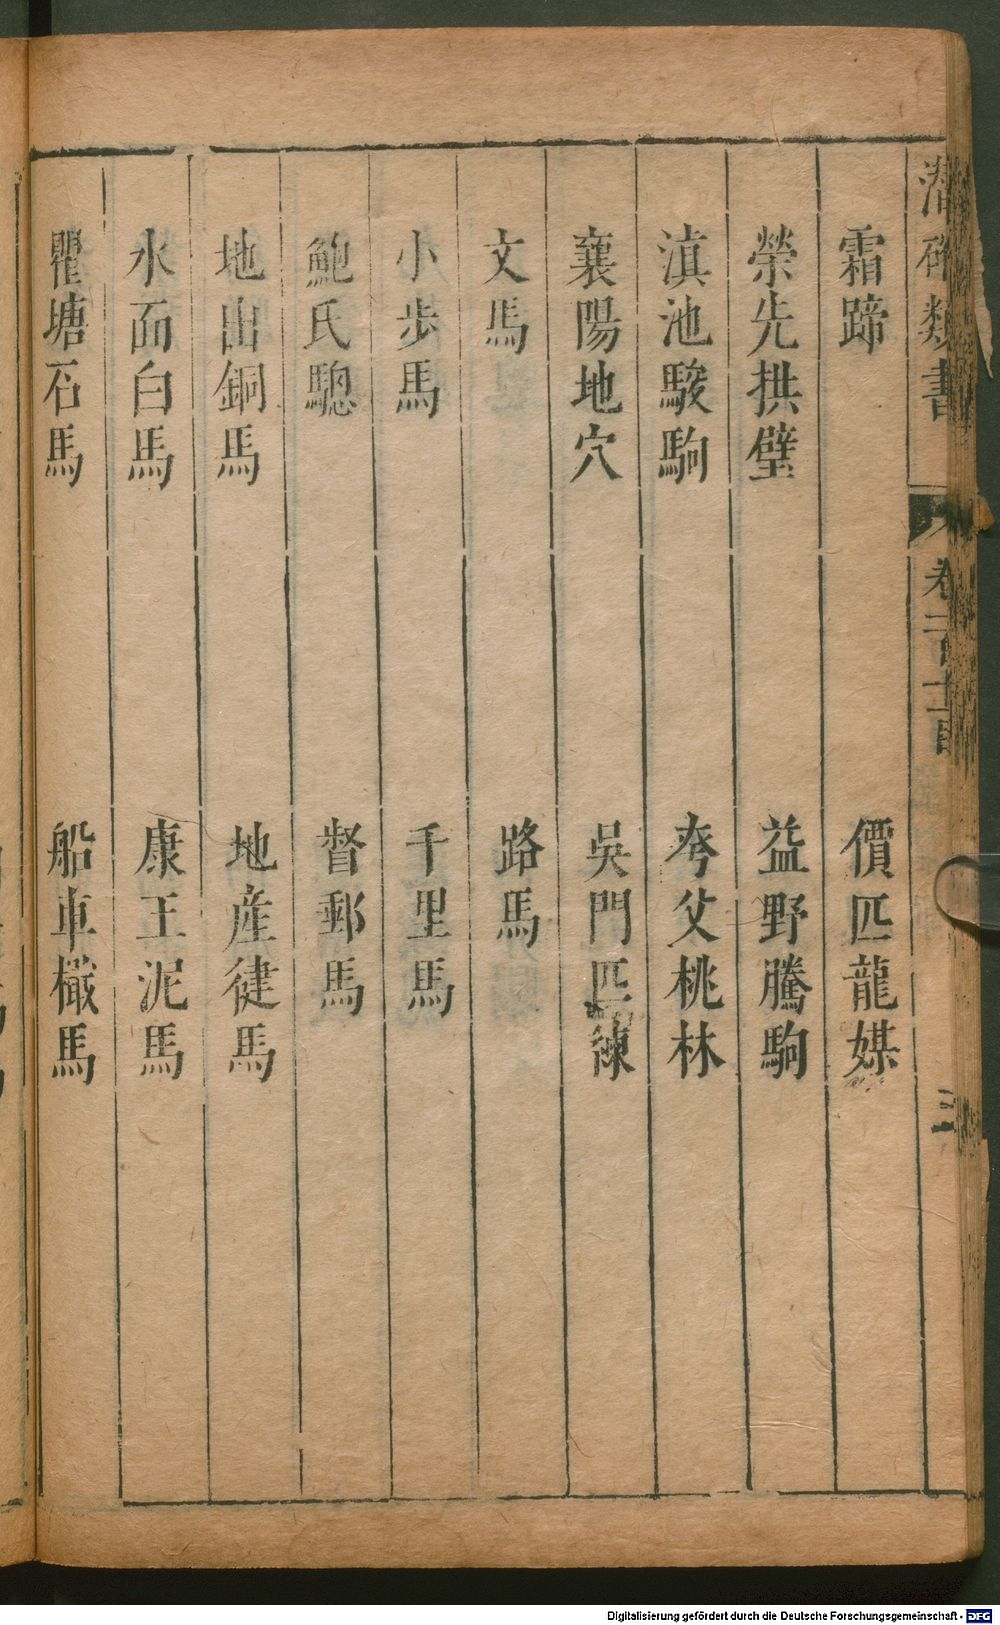 潛確類書 卷一百十一目 三
霜蹄 價匹龍媒
榮先拱璧 益野騰駒
滇池駿駒 夸父桃林
襄陽地穴 吳門匹練
文馬 路馬
小步馬 千里馬
鮑氏驄 督郵馬
地出銅馬 地産健馬
水面白馬 康王泥馬
瞿塘石馬 船車檝馬
Digitalisierung gefördert durch die Deutsche Forschungsgemeinschaft - DFG